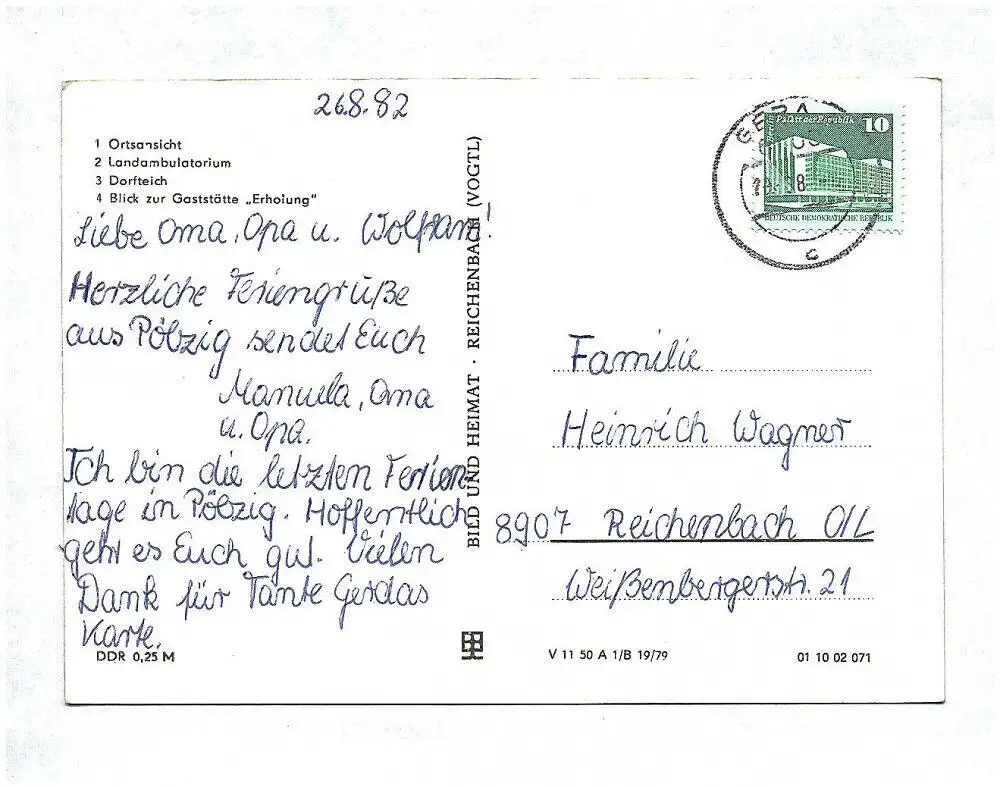 26.8.82
1 Ortsansicht
2 Landambulatorium
3 Dorfteich
4 Blick zur Gaststätte „Erholung"
Liebe Oma, Opa u. Wolfram!
Herzliche Feriengrüße
aus Pölzig sendet Euch
Manuela, Oma
u. Opa.
Ich bin die letzten Ferien-
tage in Pölzig. Hoffentlich
geht es Euch gut. Vielen
Dank für Tante Gerdas
Karte.
DDR 0,25 M
BILD UND HEIMAT · REICHENBACH (VOGTL)
GERA
c
Palast der Republik 10
DEUTSCHE DEMOKRATISCHE REPUBLIK
Familie
Heinrich Wagner
8907 Reichenbach O/L
Weißenbergerstr. 21
V 11 50 A 1/B 19/79
01 10 02 071